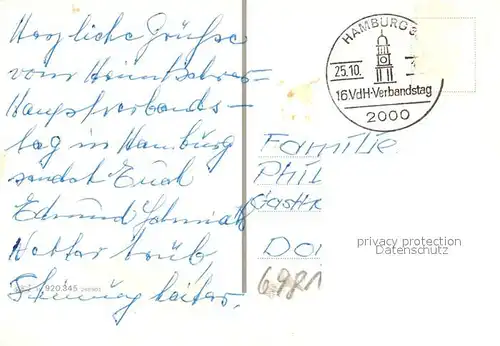 Herzliche Grüße
vom Heimtierver-
Hauptverbands-
tag in Hamburg
sendet Euch
Edmund
Wetter trüb,
Stimmung heiter.
920.345
HAMBURG 3
25.10.
16.VdH-Verbandstag
2000
Familie
PHIL
Gastr
Da
privacy protection
Datenschutz
6981